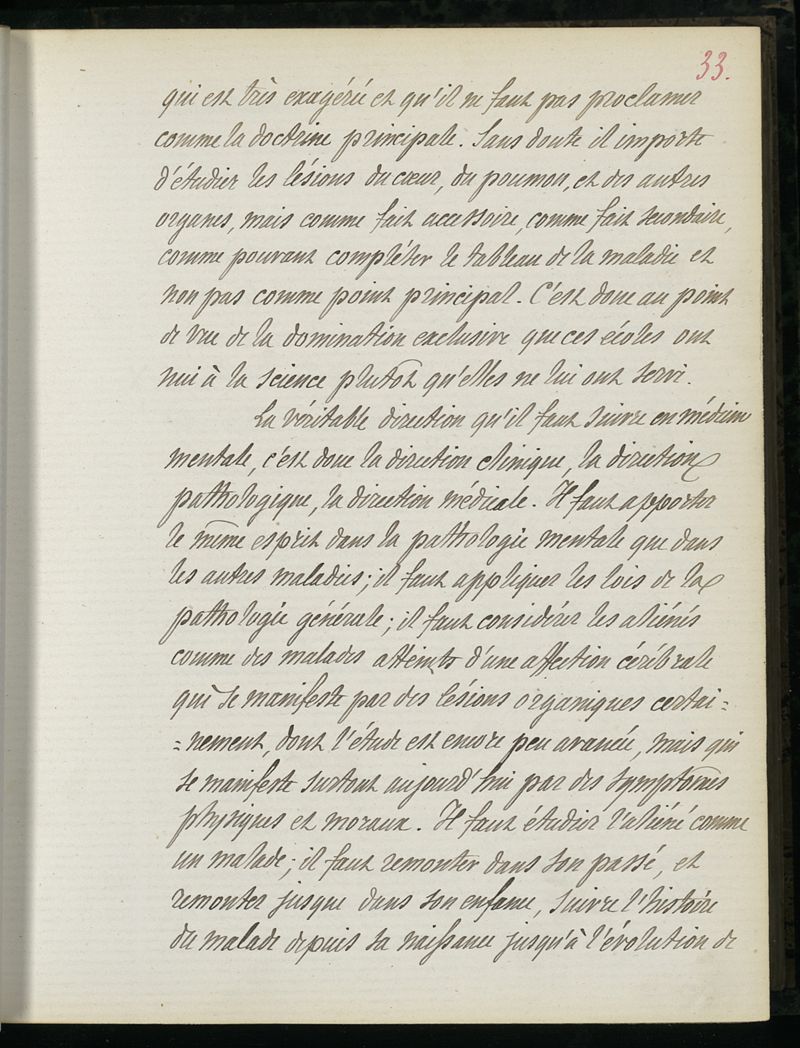 33.
qui est très exagérée et qu'il ne faut pas proclamer
comme la doctrine principale. Sans doute il importe
d'étudier les lésions du cœur, du poumon, et des autres
organes, mais comme fait accessoire, comme fait secondaire,
comme pouvant compléter le tableau de la maladie et
non pas comme point principal. C'est donc au point
de vue de la domination exclusive que ces écoles ont
nui à la science plutôt qu'elles ne lui ont servi.
La véritable direction qu'il faut suivre en médecine
mentale, c'est donc la direction clinique, la direction
pathologique, la direction médicale. Il faut apporter
le même esprit dans la pathologie mentale que dans
les autres maladies; il faut appliquer les lois de la
pathologie générale; il faut considérer les aliénés
comme des malades atteints d'une affection cérébrale
qui se manifeste par des lésions organiques certai=
=nement, dont l'étude est encore peu avancée, mais qui
se manifeste surtout aujourd'hui par des symptômes
physiques et moraux. Il faut étudier l'aliéné comme
un malade; il faut remonter dans son passé, et
remonter jusque dans son enfance, suivre l'histoire
du malade depuis sa naissance jusqu'à l'évolution de